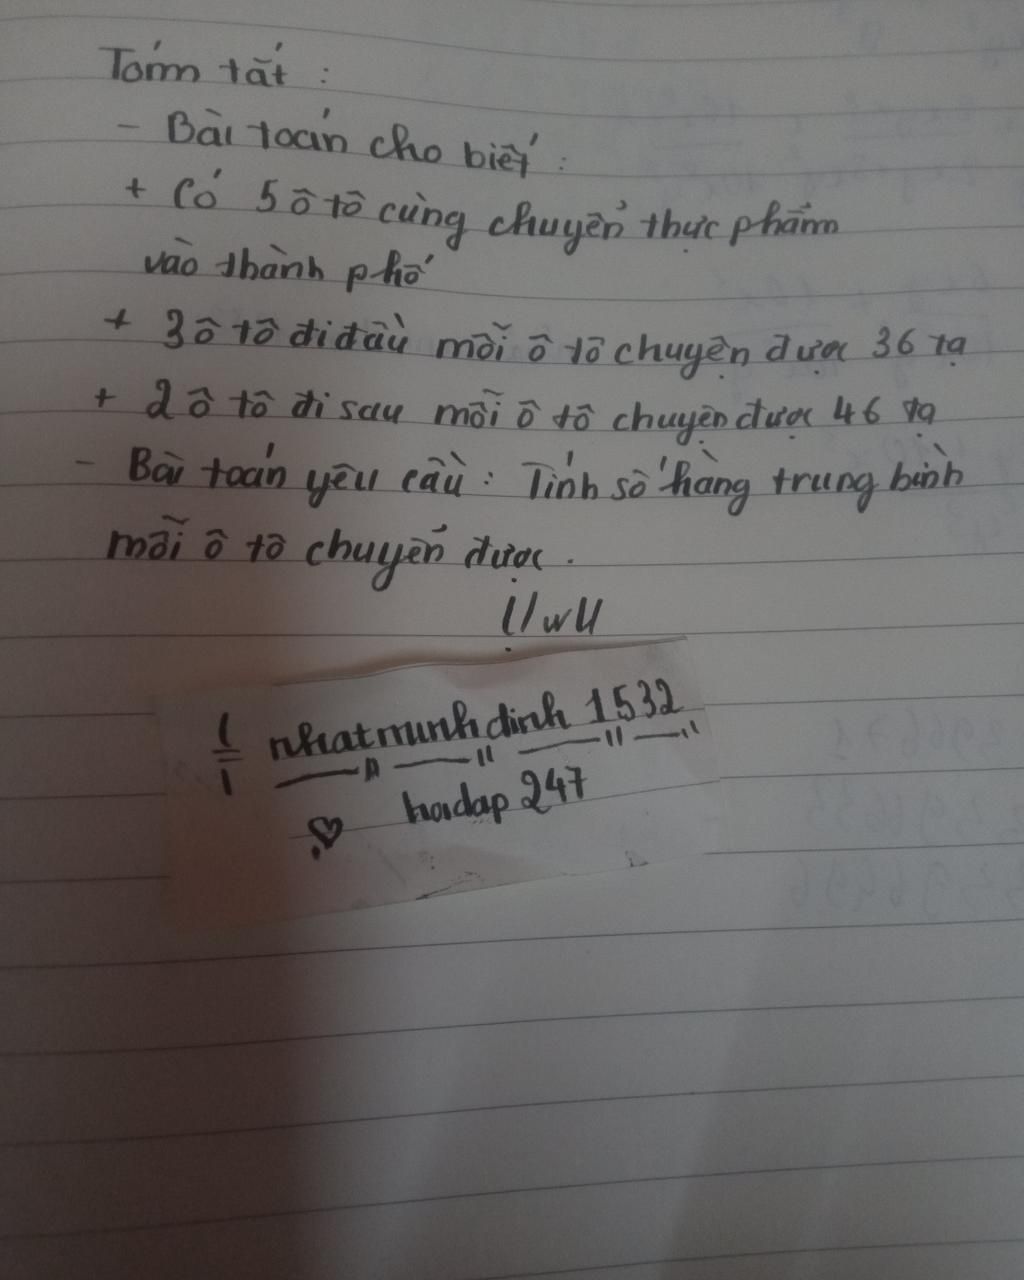 Tóm tắt :
- Bài toán cho biết :
+ Có 5 ô tô cùng chuyển thực phẩm
vào thành phố
+ 3 ô tô đi đầu mỗi ô tô chuyện được 36 tạ
+ 2 ô tô đi sau mỗi ô tô chuyện được 46 tạ
- Bài toán yêu cầu : Tính số hàng trung bình
mỗi ô tô chuyển được .
UwU
1/1 nhatminhdinh 1532
hoidap 247